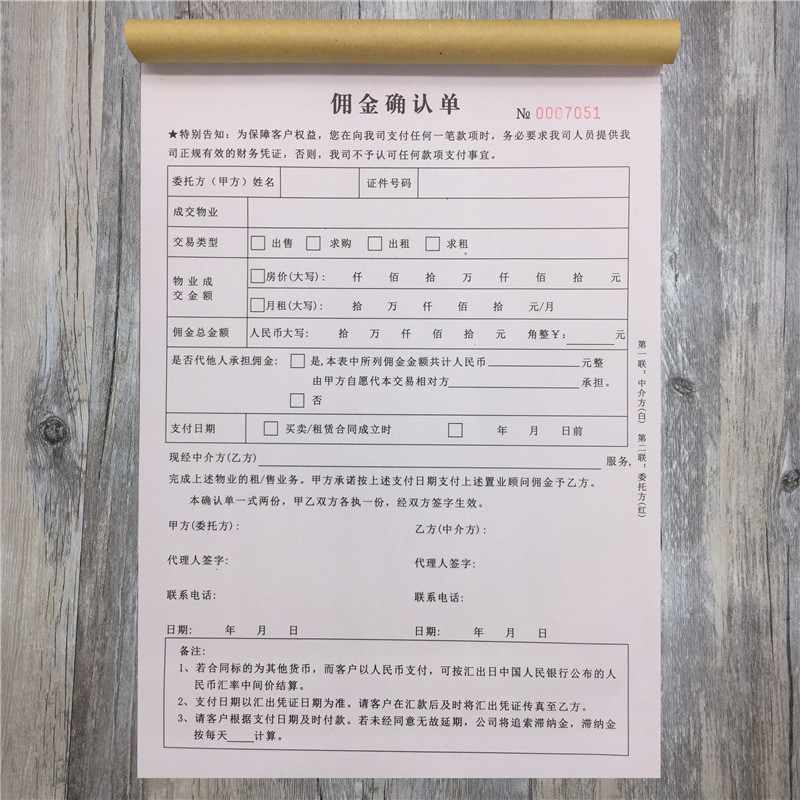 佣金确认单
№ 0007051
★特别告知：为保障客户权益，您在向我司支付任何一笔款项时，务必要求我司人员提供我
司正规有效的财务凭证，否则，我司不予认可任何款项支付事宜。
委托方（甲方）姓名 证件号码
成交物业
交易类型 □ 出售 □ 求购 □ 出租 □ 求租
物业成
交金额
□房价(大写)： 仟 佰 拾 万 仟 佰 拾 元
□月租(大写)： 拾 万 仟 佰 拾 元/月
佣金总金额 人民币大写： 拾 万 仟 佰 拾 元 角整￥：______元
是否代他人承担佣金： □ 是,本表中所列佣金金额共计人民币__________元整
由甲方自愿代本交易相对方______________承担。
□ 否
支付日期 □ 买卖/租赁合同成立时 □ 年 月 日前
现经中介方(乙方)____________________服务,
完成上述物业的租/售业务。甲方承诺按上述支付日期支付上述置业顾问佣金予乙方。
本确认单一式两份，甲乙双方各执一份，经双方签字生效。
甲方(委托方)： 乙方(中介方)：
代理人签字： 代理人签字：
联系电话： 联系电话：
日期： 年 月 日 日期： 年 月 日
备注：
1、若合同标的为其他货币，而客户以人民币支付，可按汇出日中国人民银行公布的人
民币汇率中间价结算。
2、支付日期以汇出凭证日期为准。请客户在汇款后及时将汇出凭证传真至乙方。
3、请客户根据支付日期及时付款。若未经同意无故延期，公司将追索滞纳金，滞纳金
按每天____计算。
第一联：中介方(白) 第二联：委托方(红)